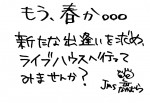 もう、春か。。。
新たな出逢いを求め、
ライブハウスへ行って
みませんか？
Jms